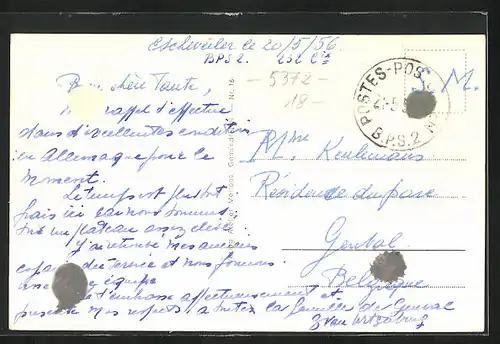 Eschweiler le 20/5/56
BPS 2. 252 Cie
- 5372 -
18 -
POSTES-POS
21-5
B.P.S. 2
S. M.
Bonne chère Tante,
rappel s'effectue
dans d'excellentes conditions
en Allemagne pour le
moment.
Le temps est plutôt
frais ici car nous sommes
sur un plateau assez élevé
J'ai retrouvé mes anciens
copains du service et nous formons
une équipe
t'embrasse affectueusement et
présente mes respects à toutes la famille de Genval
Mme Keulemans
Résidence du parc
Genval
Belgique